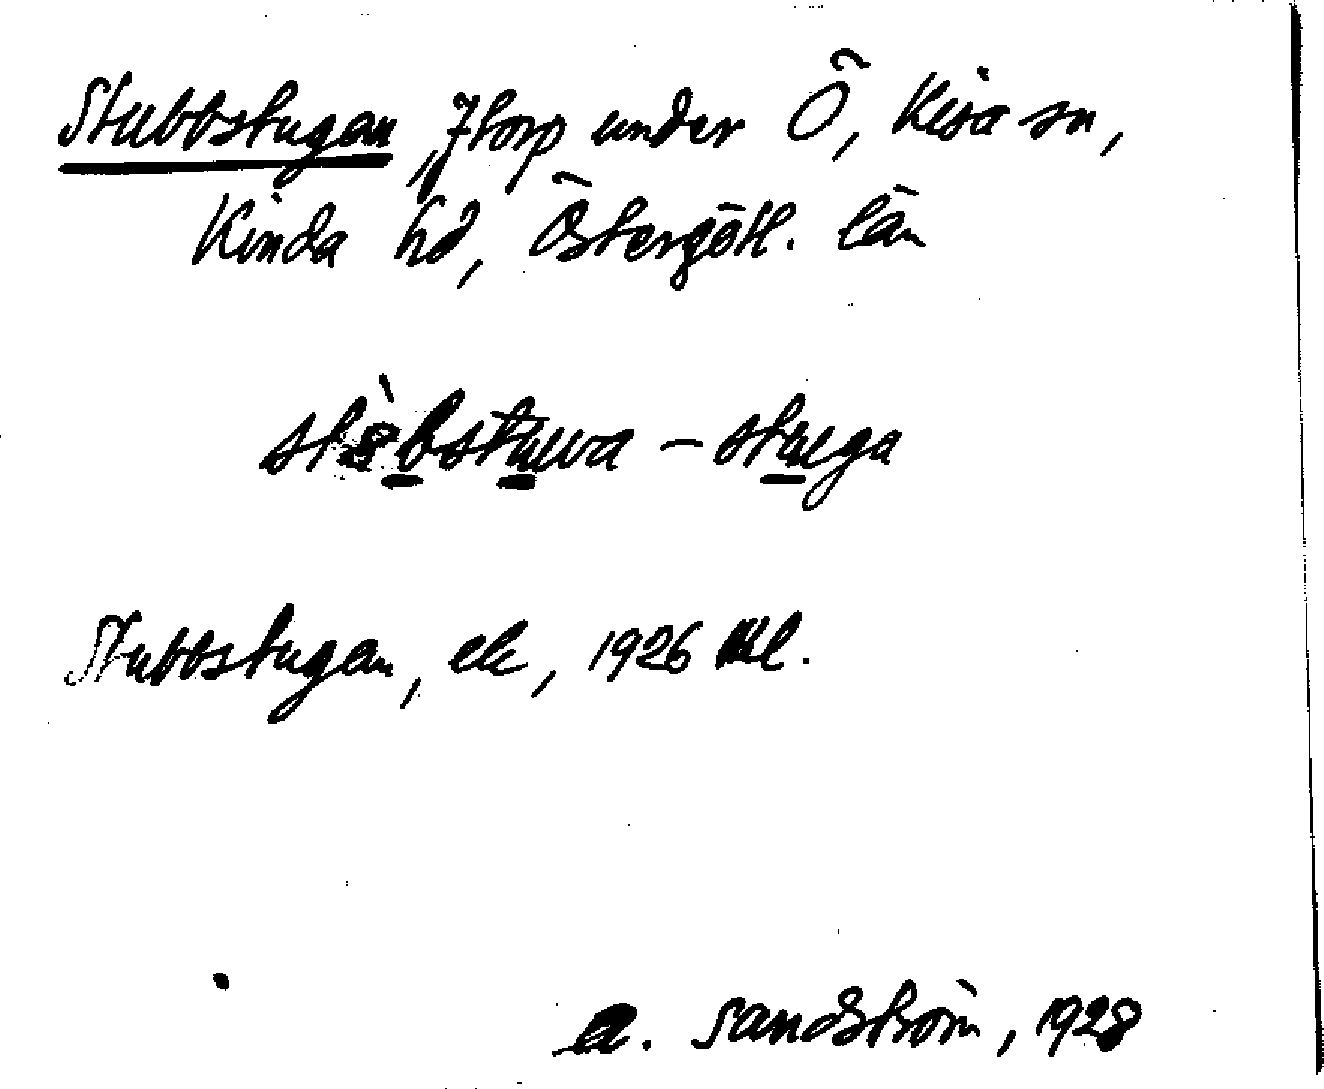 Stubbstugan, torp under Ö, Kisa sn,
Kinda hd, Östergötl. län
stùbstuwa – stuga
Stubbstugan, ek, 1926 Ml.
A. Sandström, 1928